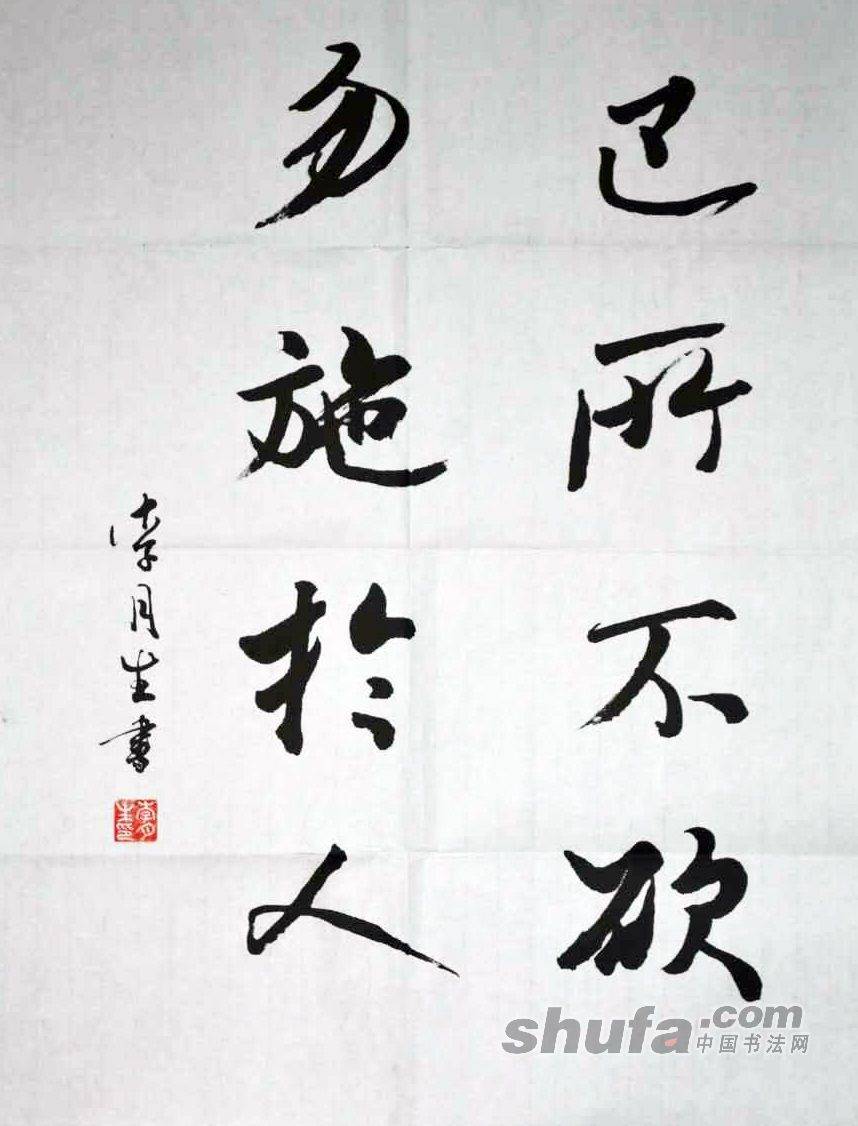 己所不欲
勿施於人
李月生書
shufa.com
中国书法网